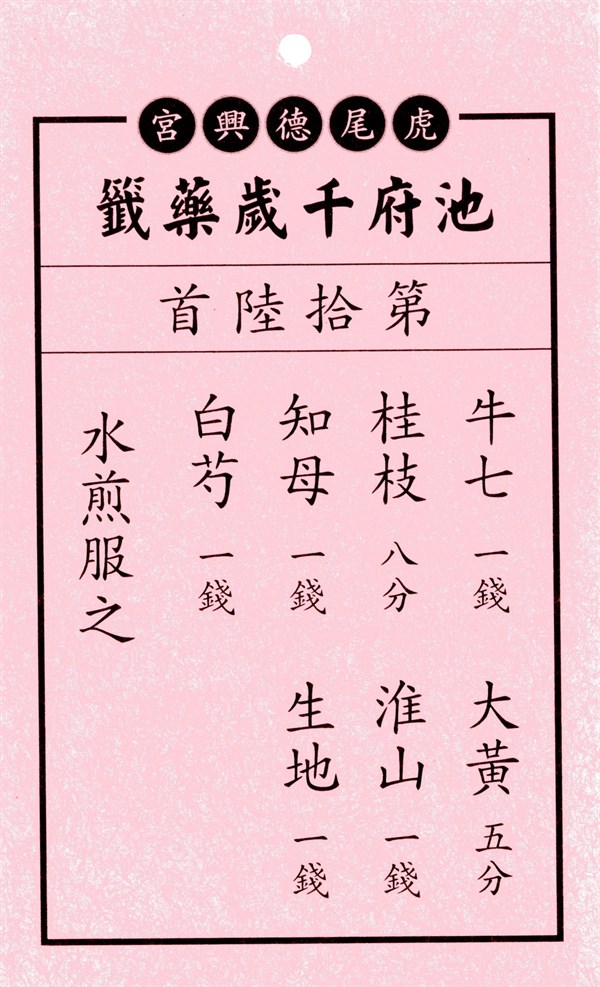 虎尾德興宮
池府千歲藥籤
第拾陸首
牛七 一錢 大黃 五分
桂枝 八分 淮山 一錢
知母 一錢 生地 一錢
白芍 一錢
水煎服之